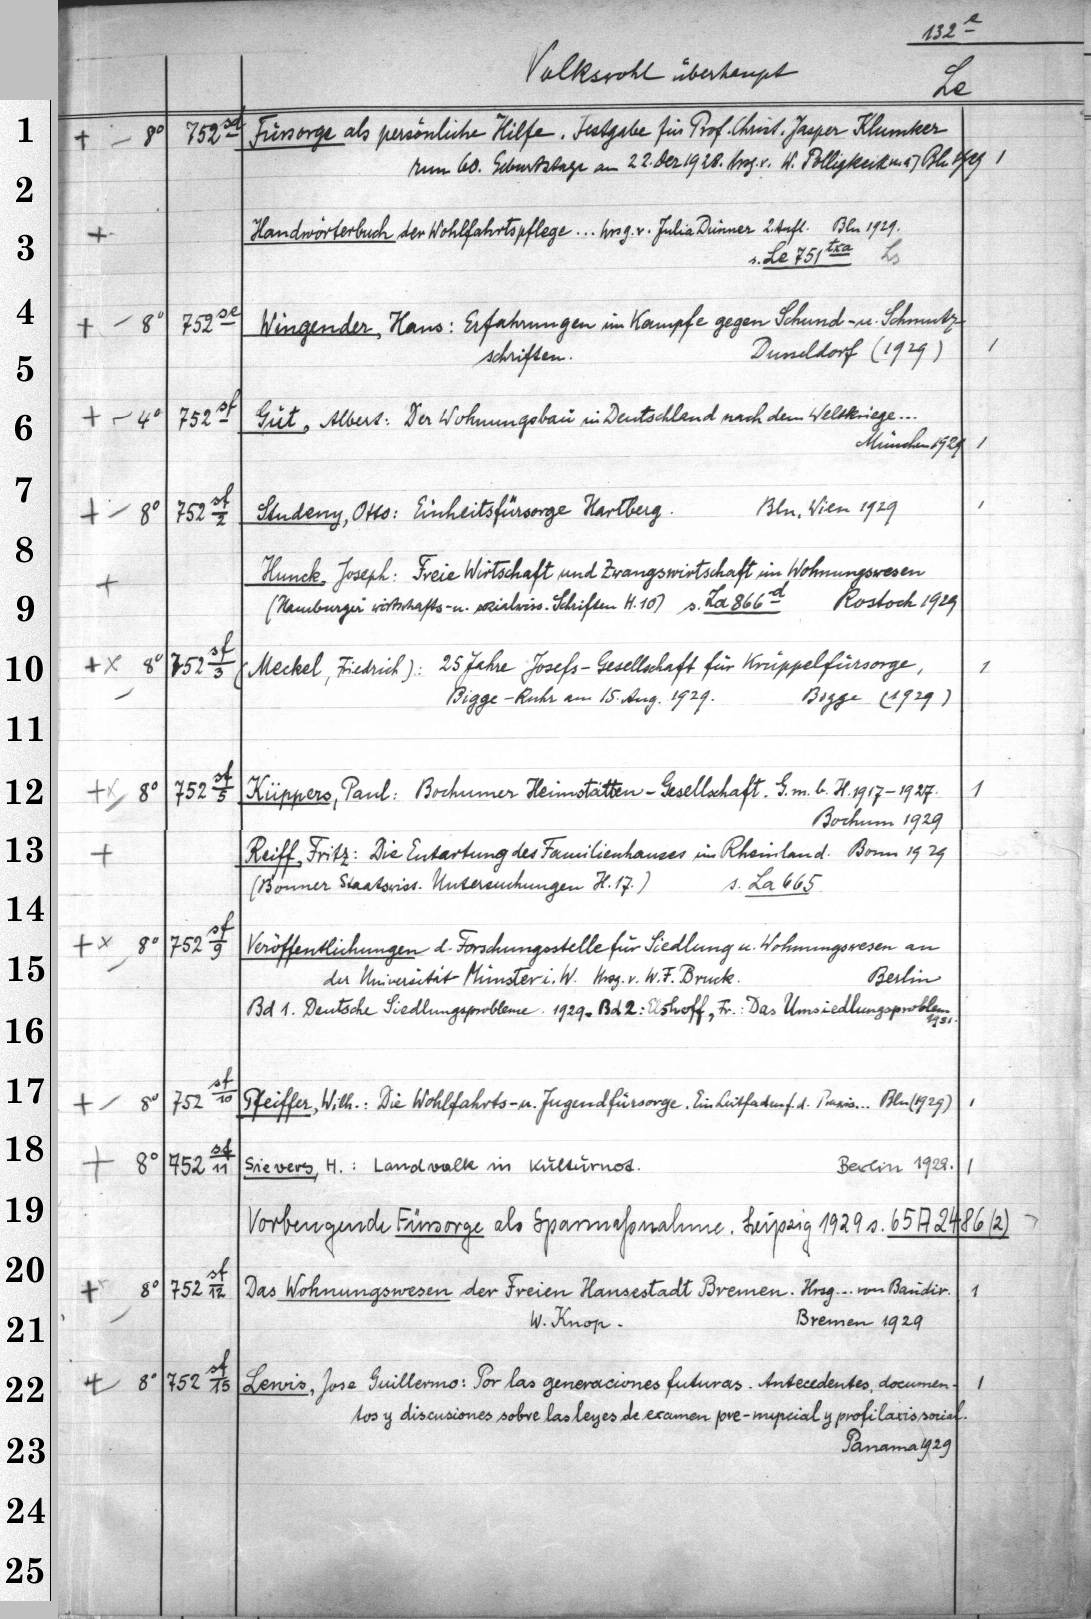 132 e
Volkswohl überhaupt Le
1 + – 8° 752 sd Fürsorge als persönliche Hilfe. Festgabe für Prof. Christ. Jasper Klumker
zum 60. Geburtstage am 22. Dez 1928. hrsg. v. W. Polligkeit Bln 1929 1
2
3 + Handwörterbuch der Wohlfahrtspflege ... hrsg. v. Julia Dünner 2. Aufl. Bln 1929.
s. Le 751 txa Ls
4 + – 8° 752 se Wingender, Hans: Erfahrungen im Kampfe gegen Schund- u. Schmutz-
schriften. Dusseldorf (1929) 1
5
6 + – 4° 752 sf Gut, Albert: Der Wohnungsbau in Deutschland nach dem Weltkriege...
München 1929 1
7 + – 8° 752 sf/2 Studeny, Otto: Einheitsfürsorge Hartberg. Bln, Wien 1929 1
8 + Hunck, Joseph: Freie Wirtschaft und Zwangswirtschaft im Wohnungswesen
9 (Hamburger wirtschafts- u. sozialwiss. Schriften H. 10) s. La 866 d Rostock 1929
10 + x 8° 752 sf/3 (Meckel, Friedrich): 25 Jahre Josefs-Gesellschaft für Krüppelfürsorge, 1
Bigge-Ruhr am 15. Aug. 1929. Bigge (1929)
11
12 + x 8° 752 sf/5 Küppers, Paul: Bochumer Heimstätten-Gesellschaft. G. m. b. H. 1917–1927. 1
Bochum 1929
13 + Reiff, Fritz: Die Entartung des Familienhauses im Rheinland. Bonn 1929
(Bonner Staatswiss. Untersuchungen H. 17.) s. La 665
14
15 + x 8° 752 sf/9 Veröffentlichungen d. Forschungsstelle für Siedlung u. Wohnungswesen an
der Universität Münster i. W. Hrsg. v. W. F. Bruck. Berlin
16 Bd 1. Deutsche Siedlungsprobleme. 1929. Bd 2: Fr.: Das Umsiedlungsproblem
1931.
17 + – 8° 752 sf/10 Pfeiffer, Wilh.: Die Wohlfahrts- u. Jugendfürsorge. Ein Leitfaden f. d. Praxis... Bln (1929) 1
18 + 8° 752 sf/11 Sievers, H.: Landvolk in Kulturnot. Berlin 1929. 1
19 Vorbeugende Fürsorge als Sparmaßnahme. Leipzig 1929 s. 65 A 2486 (2)
20 + 8° 752 sf/12 Das Wohnungswesen der Freien Hansestadt Bremen. Hrsg... von Baudir. 1
21 W. Knop. Bremen 1929
22 + 8° 752 sf/15 Lewis, Jose Guillermo: Por las generaciones futuras. Antecedentes, documen- 1
tos y discusiones sobre las leyes de examen pre-nupcial y profilaxis social.
23 Panama 1929
24
25